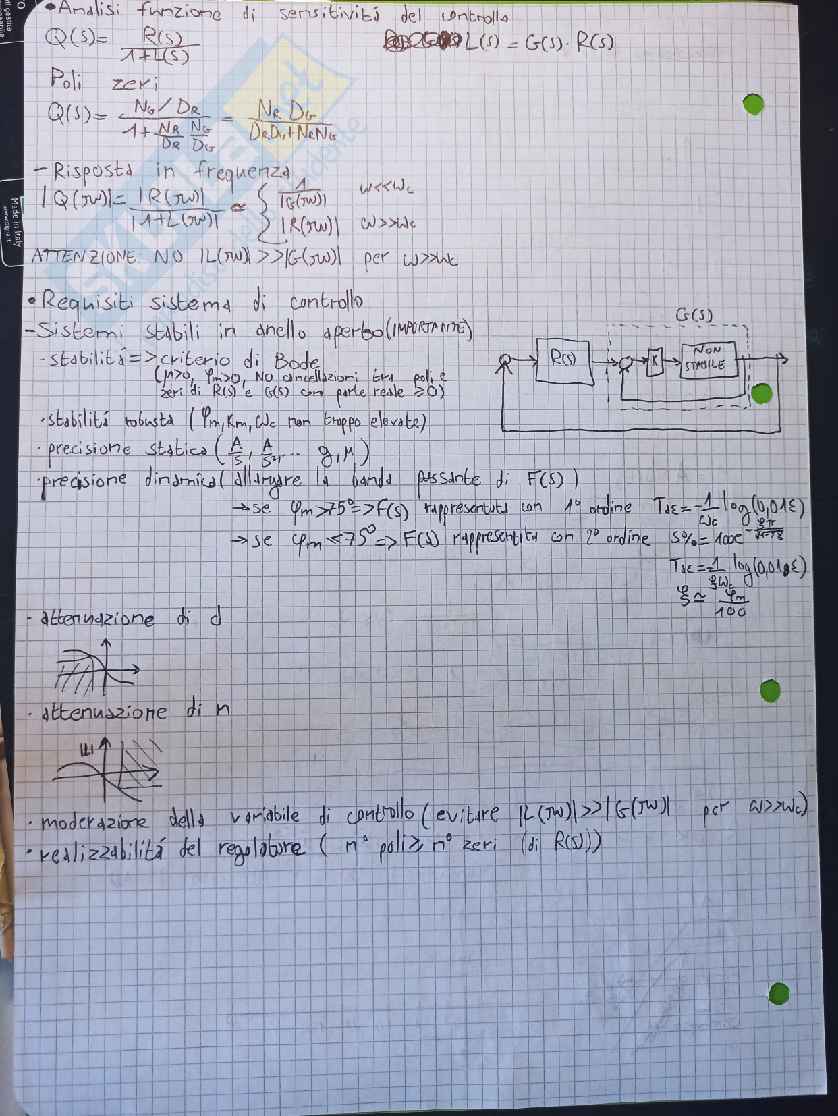 • Analisi funzione di sensitività del controllo
Q(s)= R(s)/1+L(s) L(s) = G(s)·R(s)
Poli zeri
Q(s)= NG/DR / 1+ NR/DR NG/DG = NR DG / DRDG+NRNG
- Risposta in frequenza
|Q(jw)|= |R(jw)| / |1+L(jw)| ≃ { 1/|G(jw)| w<<wc
|R(jw)| w>>wc
ATTENZIONE NO |L(jw)|>>|G(jw)| per w>>wc
• Requisiti sistema di controllo
G(s)
- Sistemi stabili in anello aperto (IMPORTANTE)
R(s) K NON STABILE
· stabilità => criterio di Bode
(μ>0, φm>0, NO cancellazioni tra poli e
zeri di R(s) e G(s) con parte reale ≥0)
· stabilità robusta (φm, Km, wc non troppo elevate)
· precisione statica (A/s, A/s², ... g, μ)
· precisione dinamica (allargare la banda passante di F(s))
→ se φm>75° => F(s) rappresentata con 1° ordine Taε=-1/wc log(0,01ε)
→ se φm<75° => F(s) rappresentata con 2° ordine S%=100e
Taε=-1/ξwc log(0,01ε)
ξ≃ φm/100
· attenuazione di d
· attenuazione di n
|F|
· moderazione della variabile di controllo (evitare |L(jw)|>>|G(jw)| per w>>wc)
· realizzabilità del regolatore ( n° poli ≥ n° zeri (di R(s)))
Made in Italy